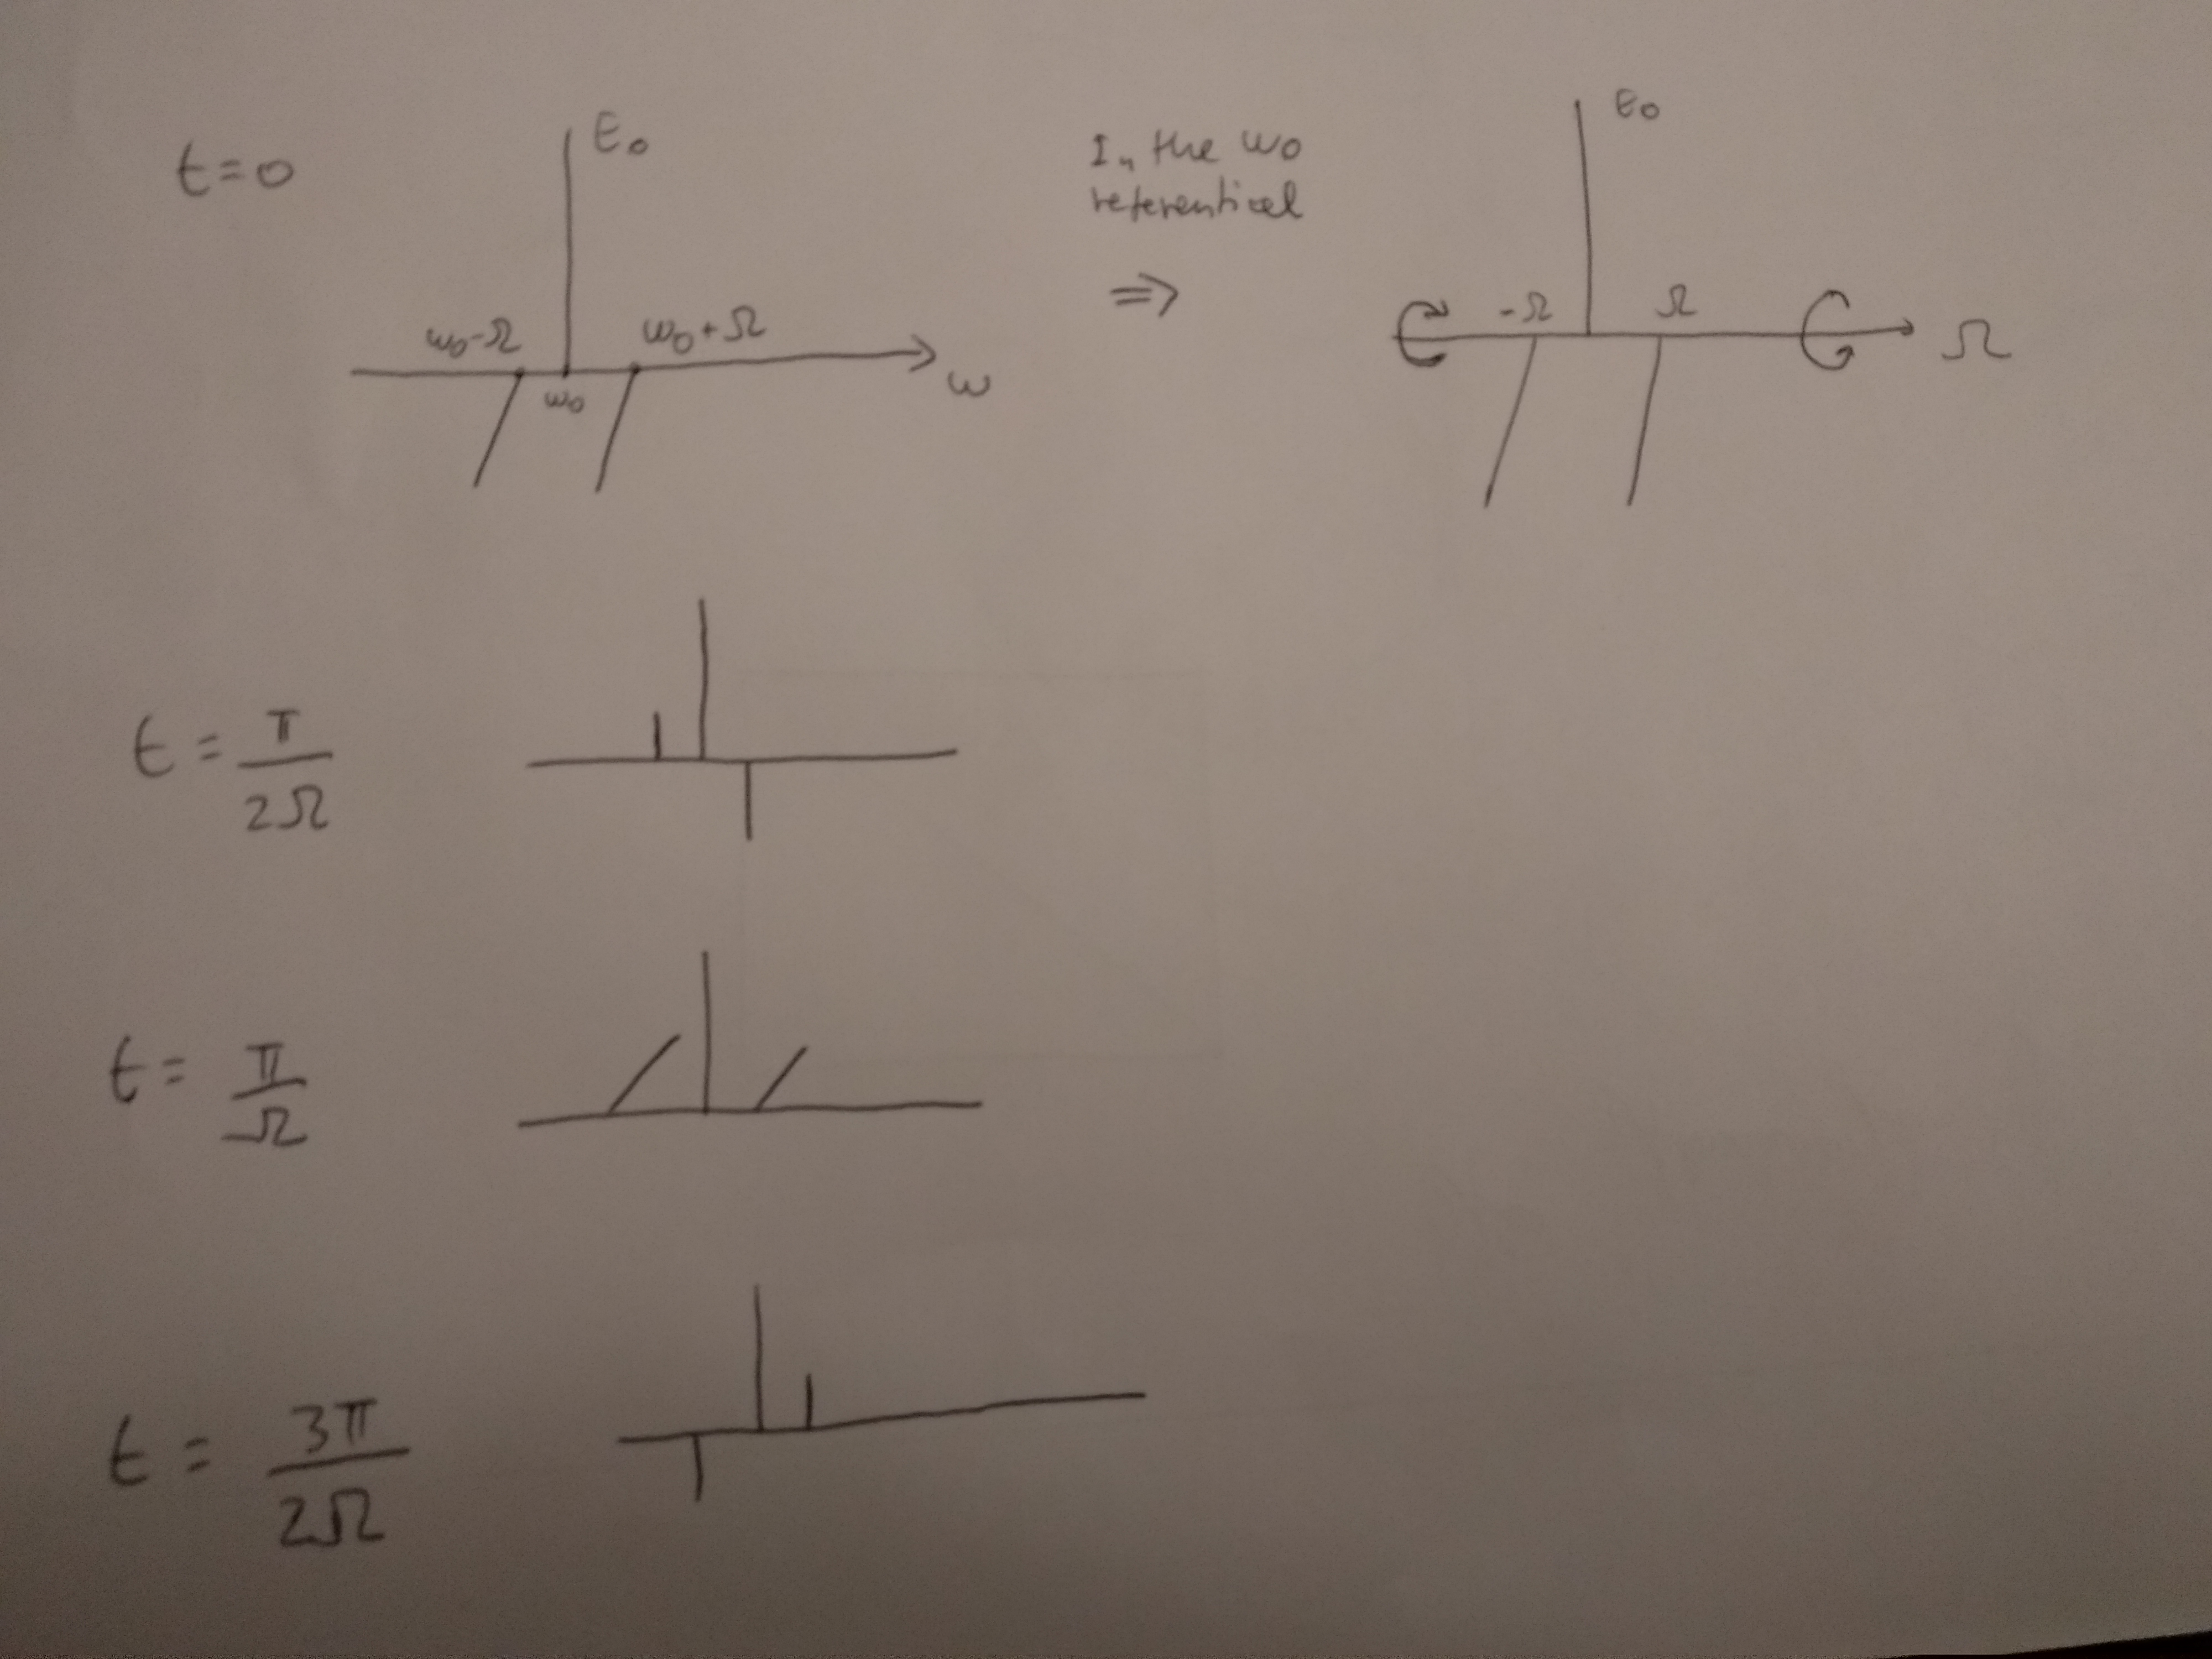 t=0
E₀
ω₀-Ω
ω₀+Ω
ω₀
ω
In the ω₀
referentiel
⇒
E₀
-Ω
Ω
Ω
t = π/2Ω
t = π/Ω
t = 3π/2Ω